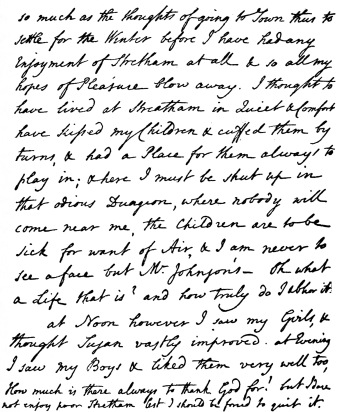 so much as the thoughts of going to Town thus to
settle for the Winter before I have had any
Enjoyment of Streatham at all & so all my
hopes of Pleasure blow away. I thought to
have lived at Streatham in Quiet & Comfort
have kissed my Children & cuffed them by
turns, & had a Place for them always to
play in; & here I must be shut up in
that odious Dungeon, where nobody will
come near me, the Children are to be
sick for want of Air, & I am never to
see a face but Mr. Johnson's — Oh what
a Life that is! and how truly do I abhor it.
at Noon however I saw my Girls, &
thought Susan vastly improved. at Evening
I saw my Boys & liked them very well too,
How much is there always to thank God for! but I dare
not enjoy poor Streatham lest I should be forced to quit it.